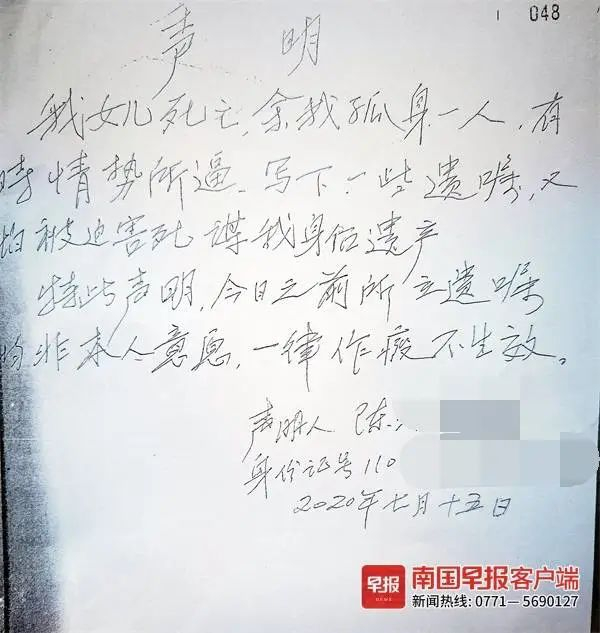 048
声明
我女儿死亡,余我孤身一人,有
时情势所逼、写下一些遗嘱,又
怕被迫害死谋我身后遗产
特此声明,今日之前所立遗嘱
均非本人意愿,一律作废不生效。
声明人 陈
身份证号110
2020年七月十五日
早报
NEWS
南国早报客户端
新闻热线: 0771—5690127